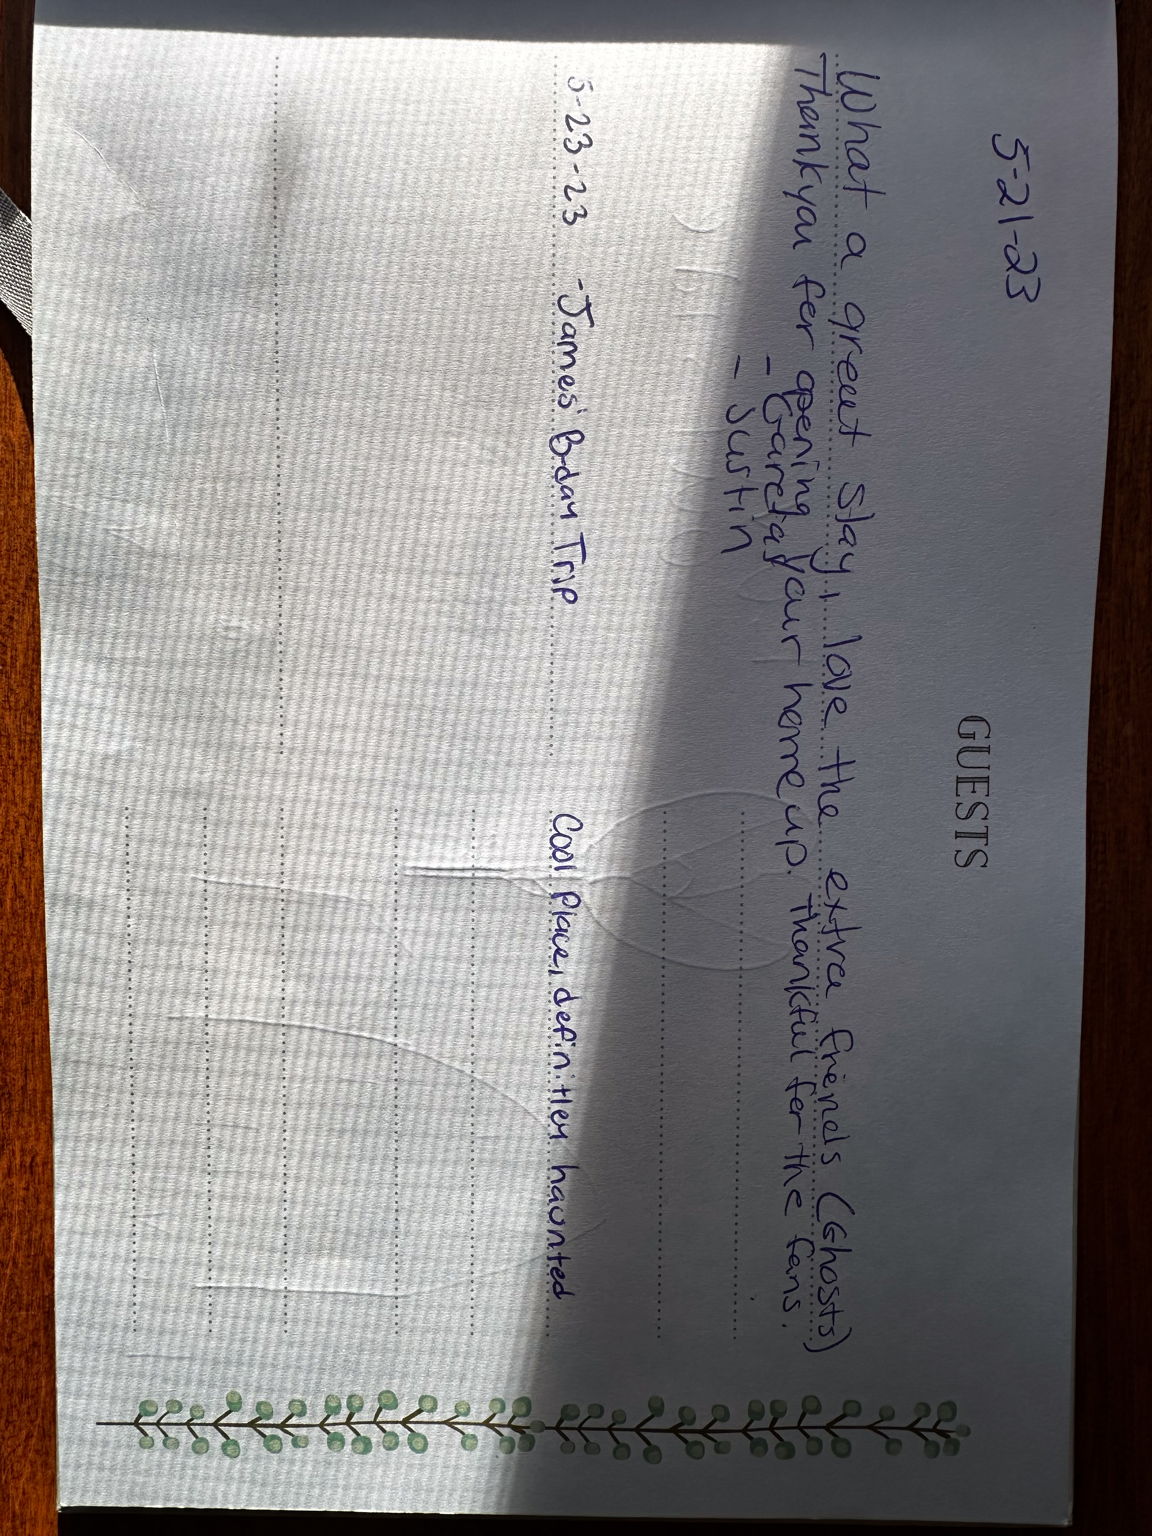 5-21-23
GUESTS
What a great stay, love the extra friends (Ghosts)
Thank you for opening your home up. Thankful for the fans.
- Justin
5-23-23 -James' B-day Trip
Cool Place, definitley haunted